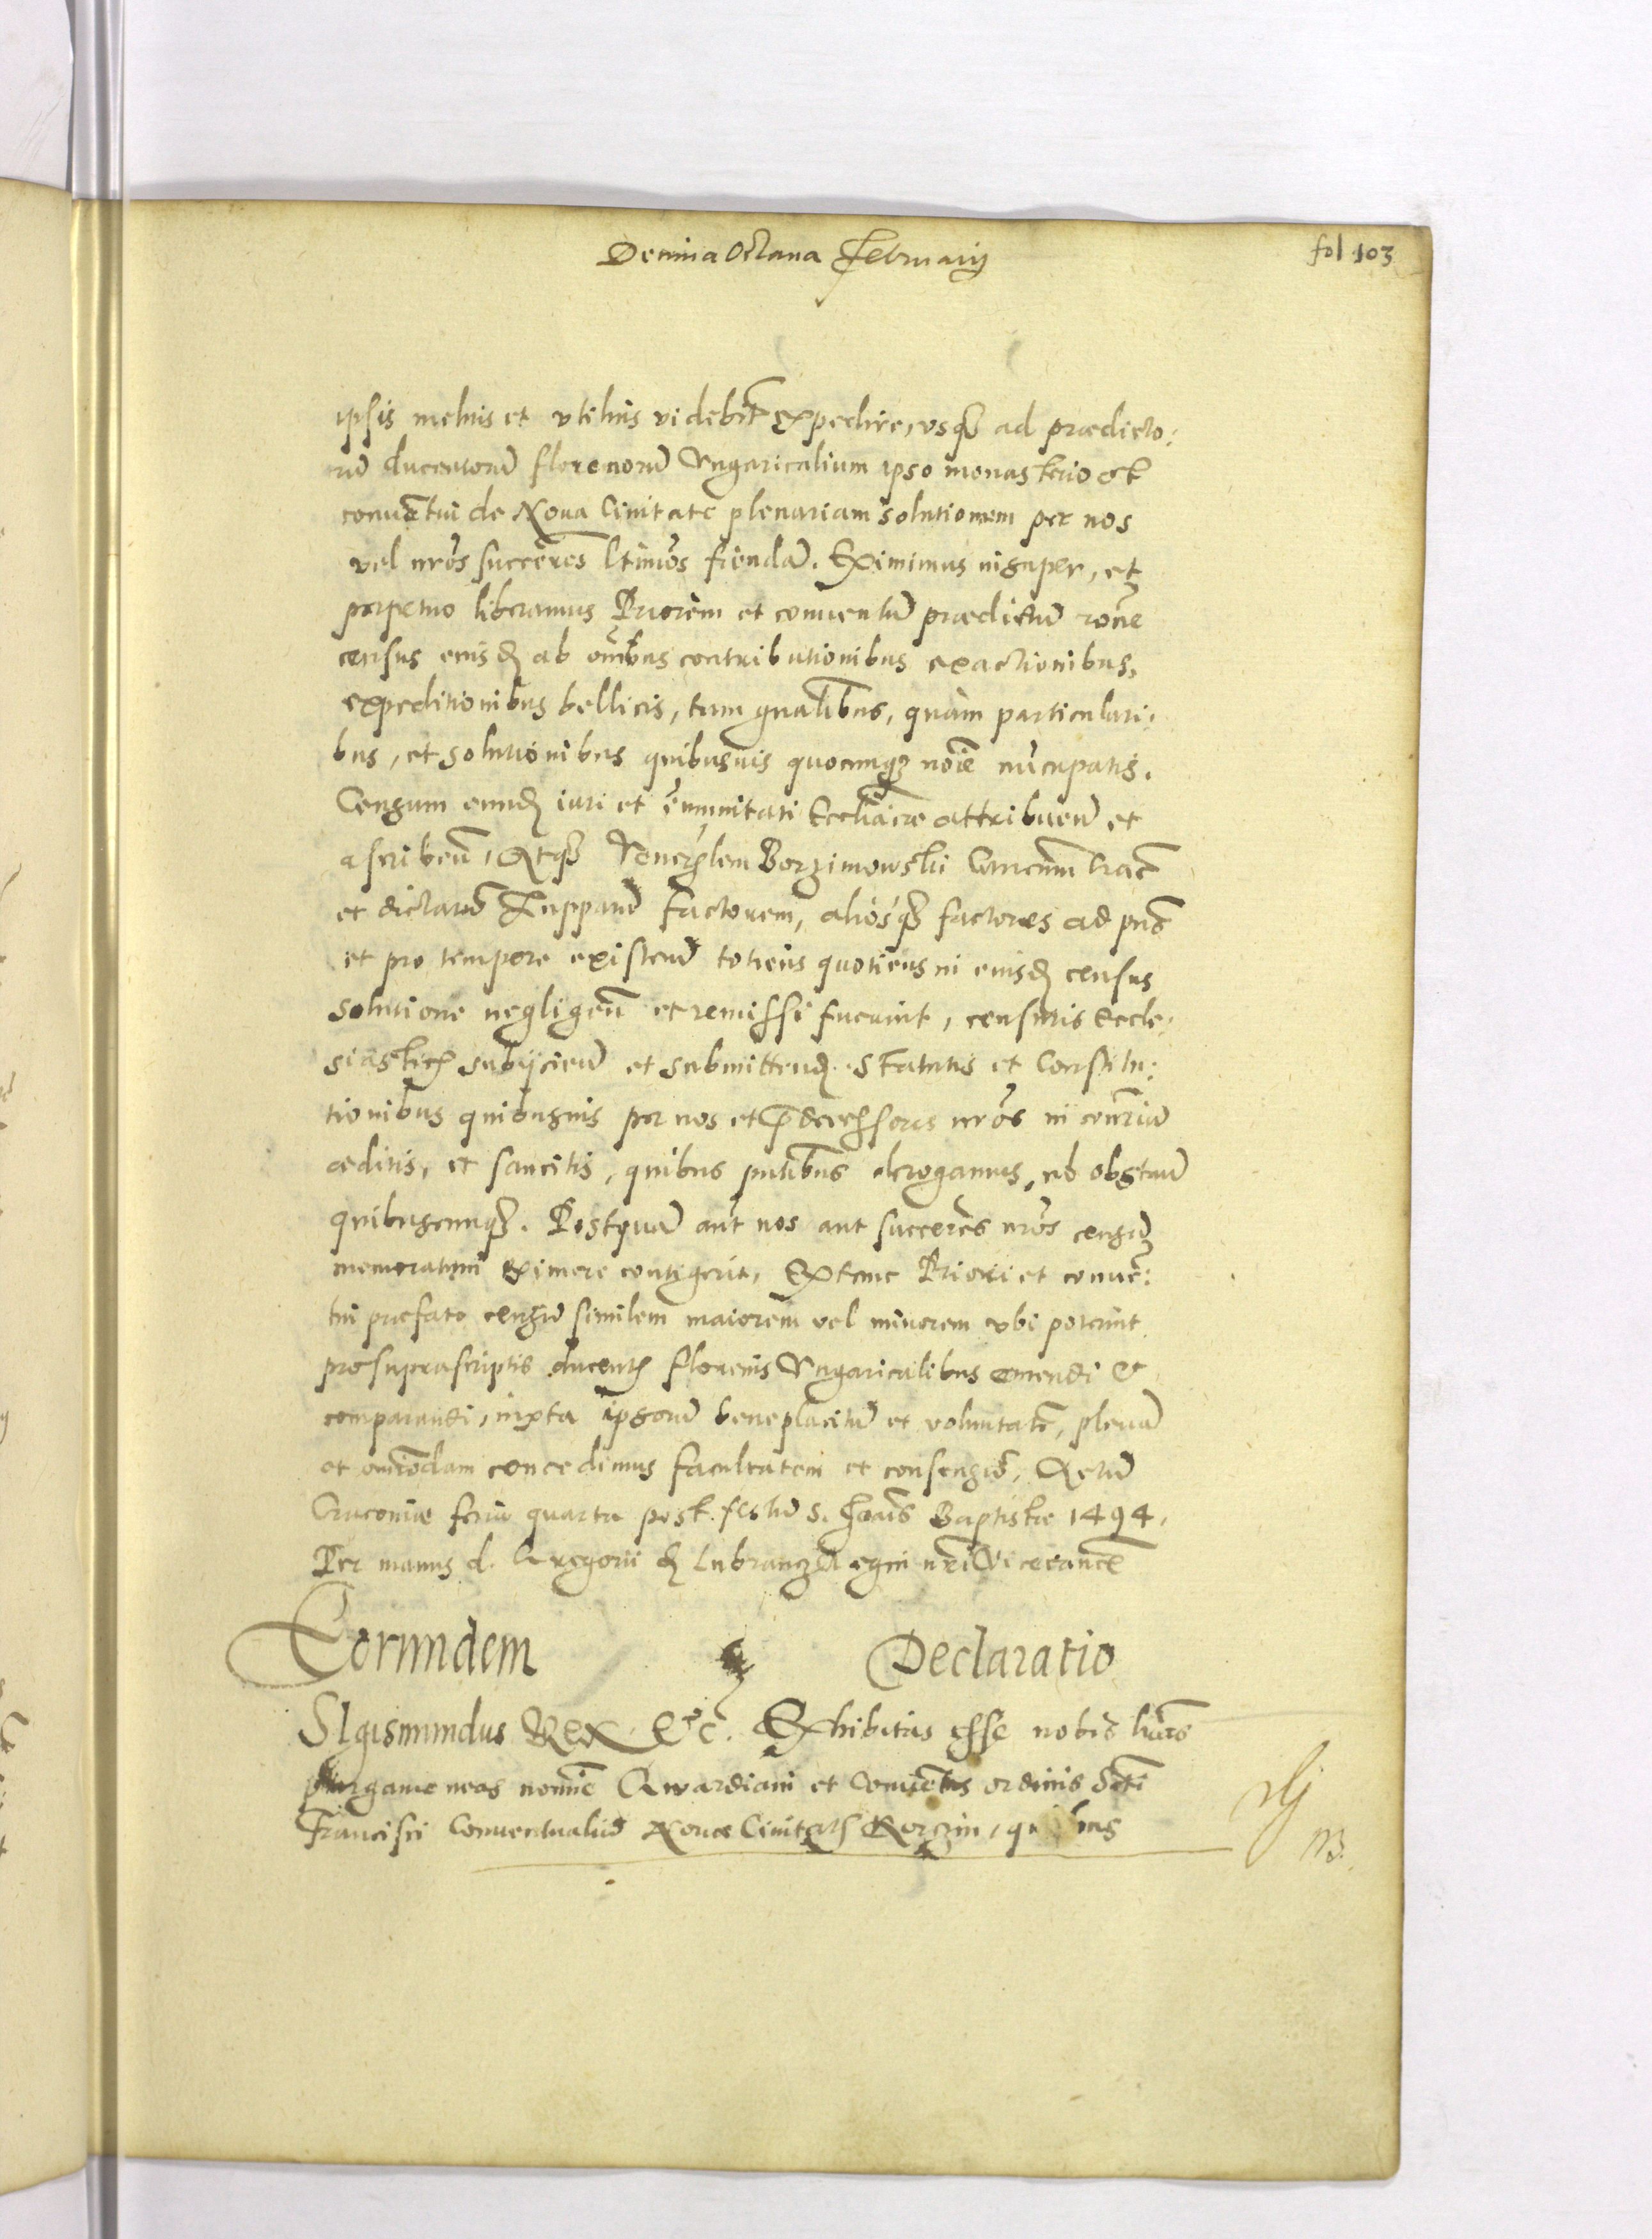 Decima Octaua February
fol 103
ipsis melius et vtilius videbit expedire, vsq ad prædicto:
rū ducentorū florenorū Vngaricalium ipso monasterio et
conuētui de Noua Ciuitate plenariam solutionem per nos
vel nrōs succēres ltīmos fiendā. Eximimus insuper, et
perpetuo liberamus Priorem et conuentū prædictū rōne
census eiusd ab omībus contributionibus exactionibus,
expeditionibus bellicis, tam gnalibus, quàm particulari:
bus, et solutionibus quibusuis quocunq nōie nūcupatis.
Censum eund iuri et īmunitati Eccliaicæ attribuen et
ascriben, Atq Borzimowski
et Zuppariū Factorem, aliosq factores ad pns
et pro tempore existen totiens quotiens in eiusd census
solutione negligen et remissi fuerint, censuris Eccle:
siastic subijcien et submitten. Statutis et Constitu:
tionibus quibusuis per nos et pdecessores nrōs in contrariū
æditis, et sancitis, quibus pntibus derogamus, nō obstan
quibuscunq. Postquā aut nos aut succeres nrōs censū
memoratum eximere contigerit, Extunc Priori et conuē:
tui præfato censū similem maiorem vel minorem vbi poterint
pro suprascriptis ducent florenis Vngaricalibus emendi et
comparandi, iuxta ipsorū beneplacitū et voluntatē, plenā
et omīodam concedimus facultatem et consensū. Actū
Cracouiæ feria quarta post festū S. Joānis Baptistæ 1494.
Per manus d. Gregorii d Lubrancz Regni nrī Vicecancē
Eorundem Declaratio
SIgismundus Rex &c. Exhibitas esse nobis lras
pargameneas nomine Gwardiani et Conuētus ordinis Scti
Francisci Conuentualiū Nouæ Ciuitatis Korczin, quibus